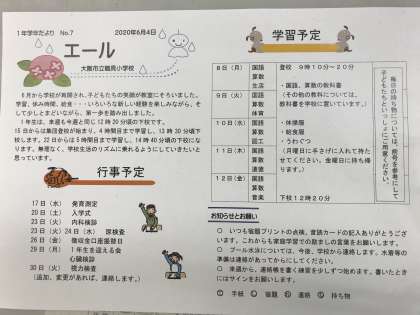 1年学年だより No.7
2020年6月4日
エール
大阪市立鶴見小学校
6月から学校が再開され、子どもたちの笑顔が教室にそろいました。
学習、休み時間、給食・・・いろいろな新しい経験を楽しみながら、そ
して少しとまどいながら、第一歩を踏み出しました。
1年生は、来週も今週と同じ12時20分の下校です。
15日からは集団登校が始まり、4時間目まで学習し、13時30分頃下
校します。22日からは5時間目まで学習し、14時40分頃の下校にな
ります。無理なく、学校生活のリズムに乗れるようにしていきたいと
思っています。
行事予定
17日（水） 発育測定
20日（土） 入学式
23日（火） 内科検診
23日（火）24日（水） 尿検査
26日（金） 徴収金口座振替日
29日（月） 1年生を迎える会
心臓検診
30日（火） 視力検査
（追加、変更があれば、連絡します。）
学習予定
8日（月） 国語 登校 9時10分～20分
算数
生活 ・国語、算数の教科書
9日（火） 国語 （その他の教科については、
算数 教科書を学校に置いています。）
体育
10日（水） 国語 ・体操服
算数 ・給食服
図工 ・うわぐつ
11日（木） 国語 （月曜日に手さげに入れて持た
算数 せてください。金曜日に持ち帰
道徳 ります。）
12日（金） 国語
算数
音楽 下校12時20分
毎日の持ち物については、週号を参考にして
子どもたちといっしょにご用意ください。
お知らせとお願い
○ いつも宿題プリントの点検、音読カードの記入ありがとうござ
います。これからも家庭学習での励ましの言葉をお願いします。
○ プール水泳については、今後、学校から連絡します。水着等の
準備は連絡があってからにしてください。
○ 来週から、連絡帳を書く練習を少しずつ始めます。書いたとき
にはサインをお願いします。
手紙 宿題 連絡 持ち物